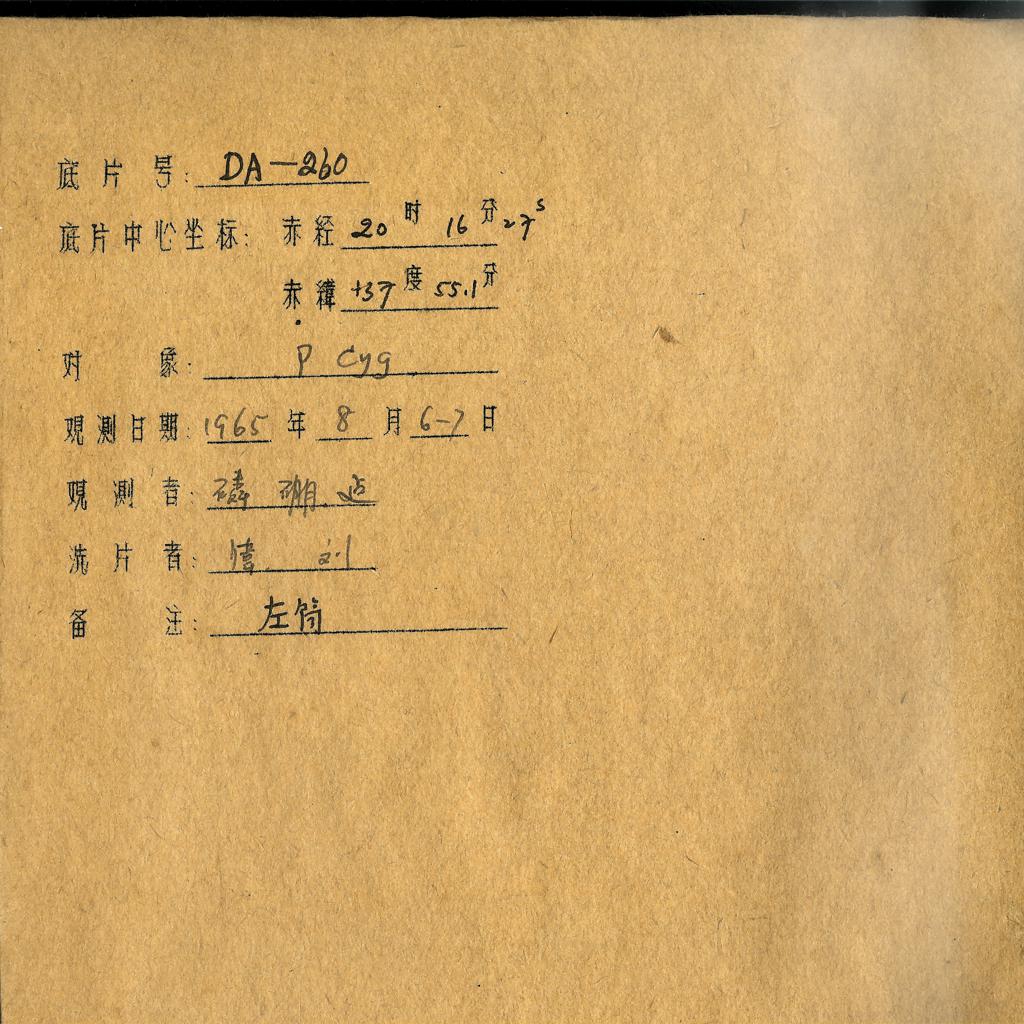 底片号: DA-260
底片中心坐标: 赤经 20时 16分 27s
赤纬 +37度 55.1分
对象: P Cyg
观测日期: 1965年 8月 6-7日
观测者: 磷 硼
洗片者: 刘
备注: 左筒